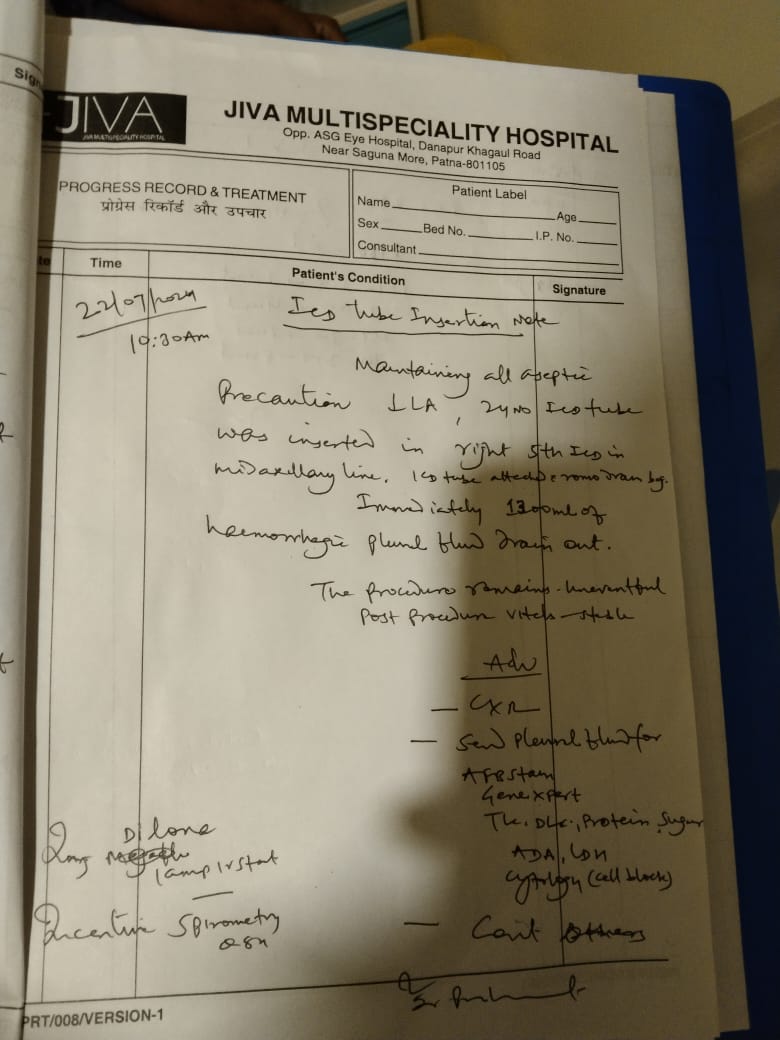 Sign
JIVA
JIVA MULTISPECIALITY HOSPITAL
JIVA MULTISPECIALITY HOSPITAL
Opp. ASG Eye Hospital, Danapur Khagaul Road
Near Saguna More, Patna-801105
PROGRESS RECORD & TREATMENT
प्रोग्रेस रिकॉर्ड और उपचार
Patient Label
Name Age
Sex Bed No. I.P. No.
Consultant
te Time Patient's Condition Signature
22/07/2024 Icd tube Insertion Note
10:30Am
Maintaining all aseptic
Precaution ↓LA, 24 No Icd tube
was inserted in right 5th Ics in
midaxillary line. Icd tube attached romo drain bag.
Immediately 1300ml of
haemorrhagic plural fluid drain out.
The procedure remains uneventful
Post procedure vitals - stable
Adv
— CXR
— Send pleural fluid for
AFB stain
Genexpert
TLC. DLC., Protein, Sugar
ADA, LDH
Cytology (cell block)
Dilona
Inj
1amp iv stat
Incentive Spirometry
— Cont Others
PRT/008/VERSION-1